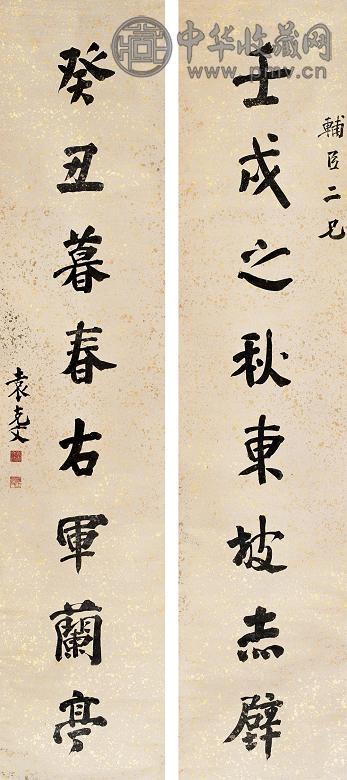 中华收藏网
www.pmv.cn
輔臣二兄
壬戌之秋東坡赤壁
癸丑暮春右軍蘭亭
袁克文